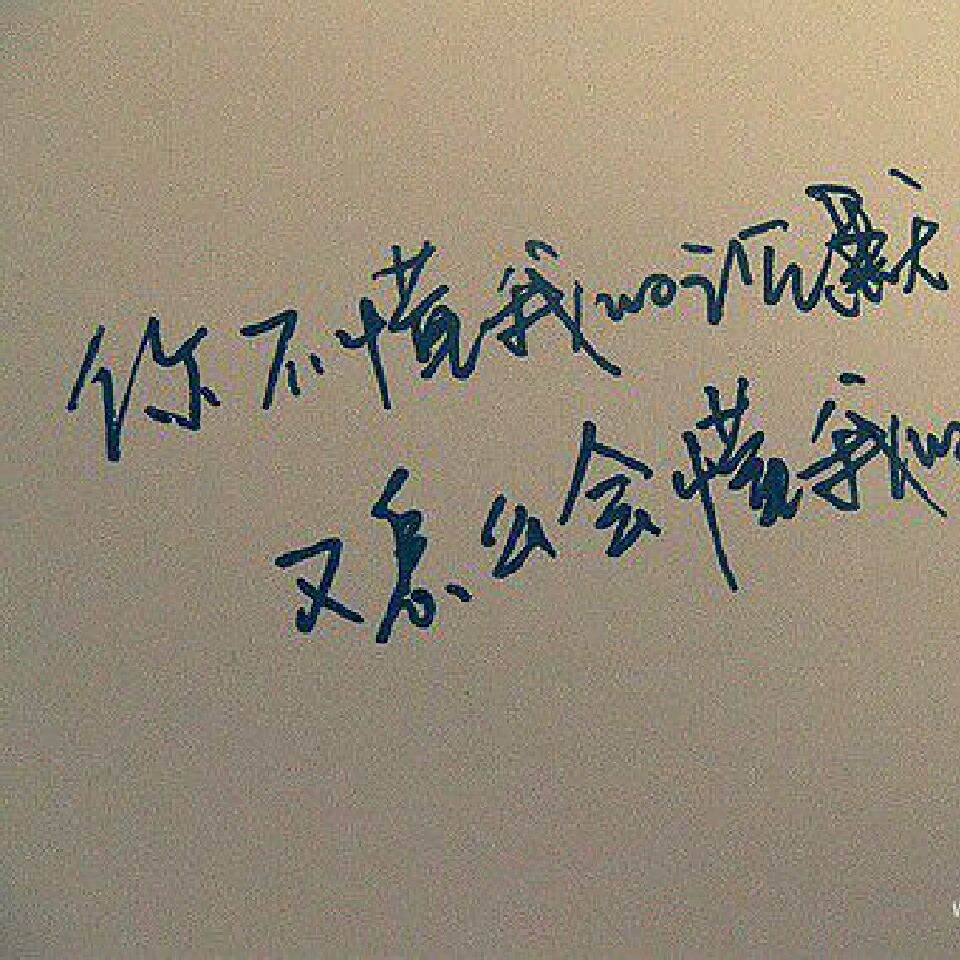 你不懂我的沉默
又怎么会懂我的